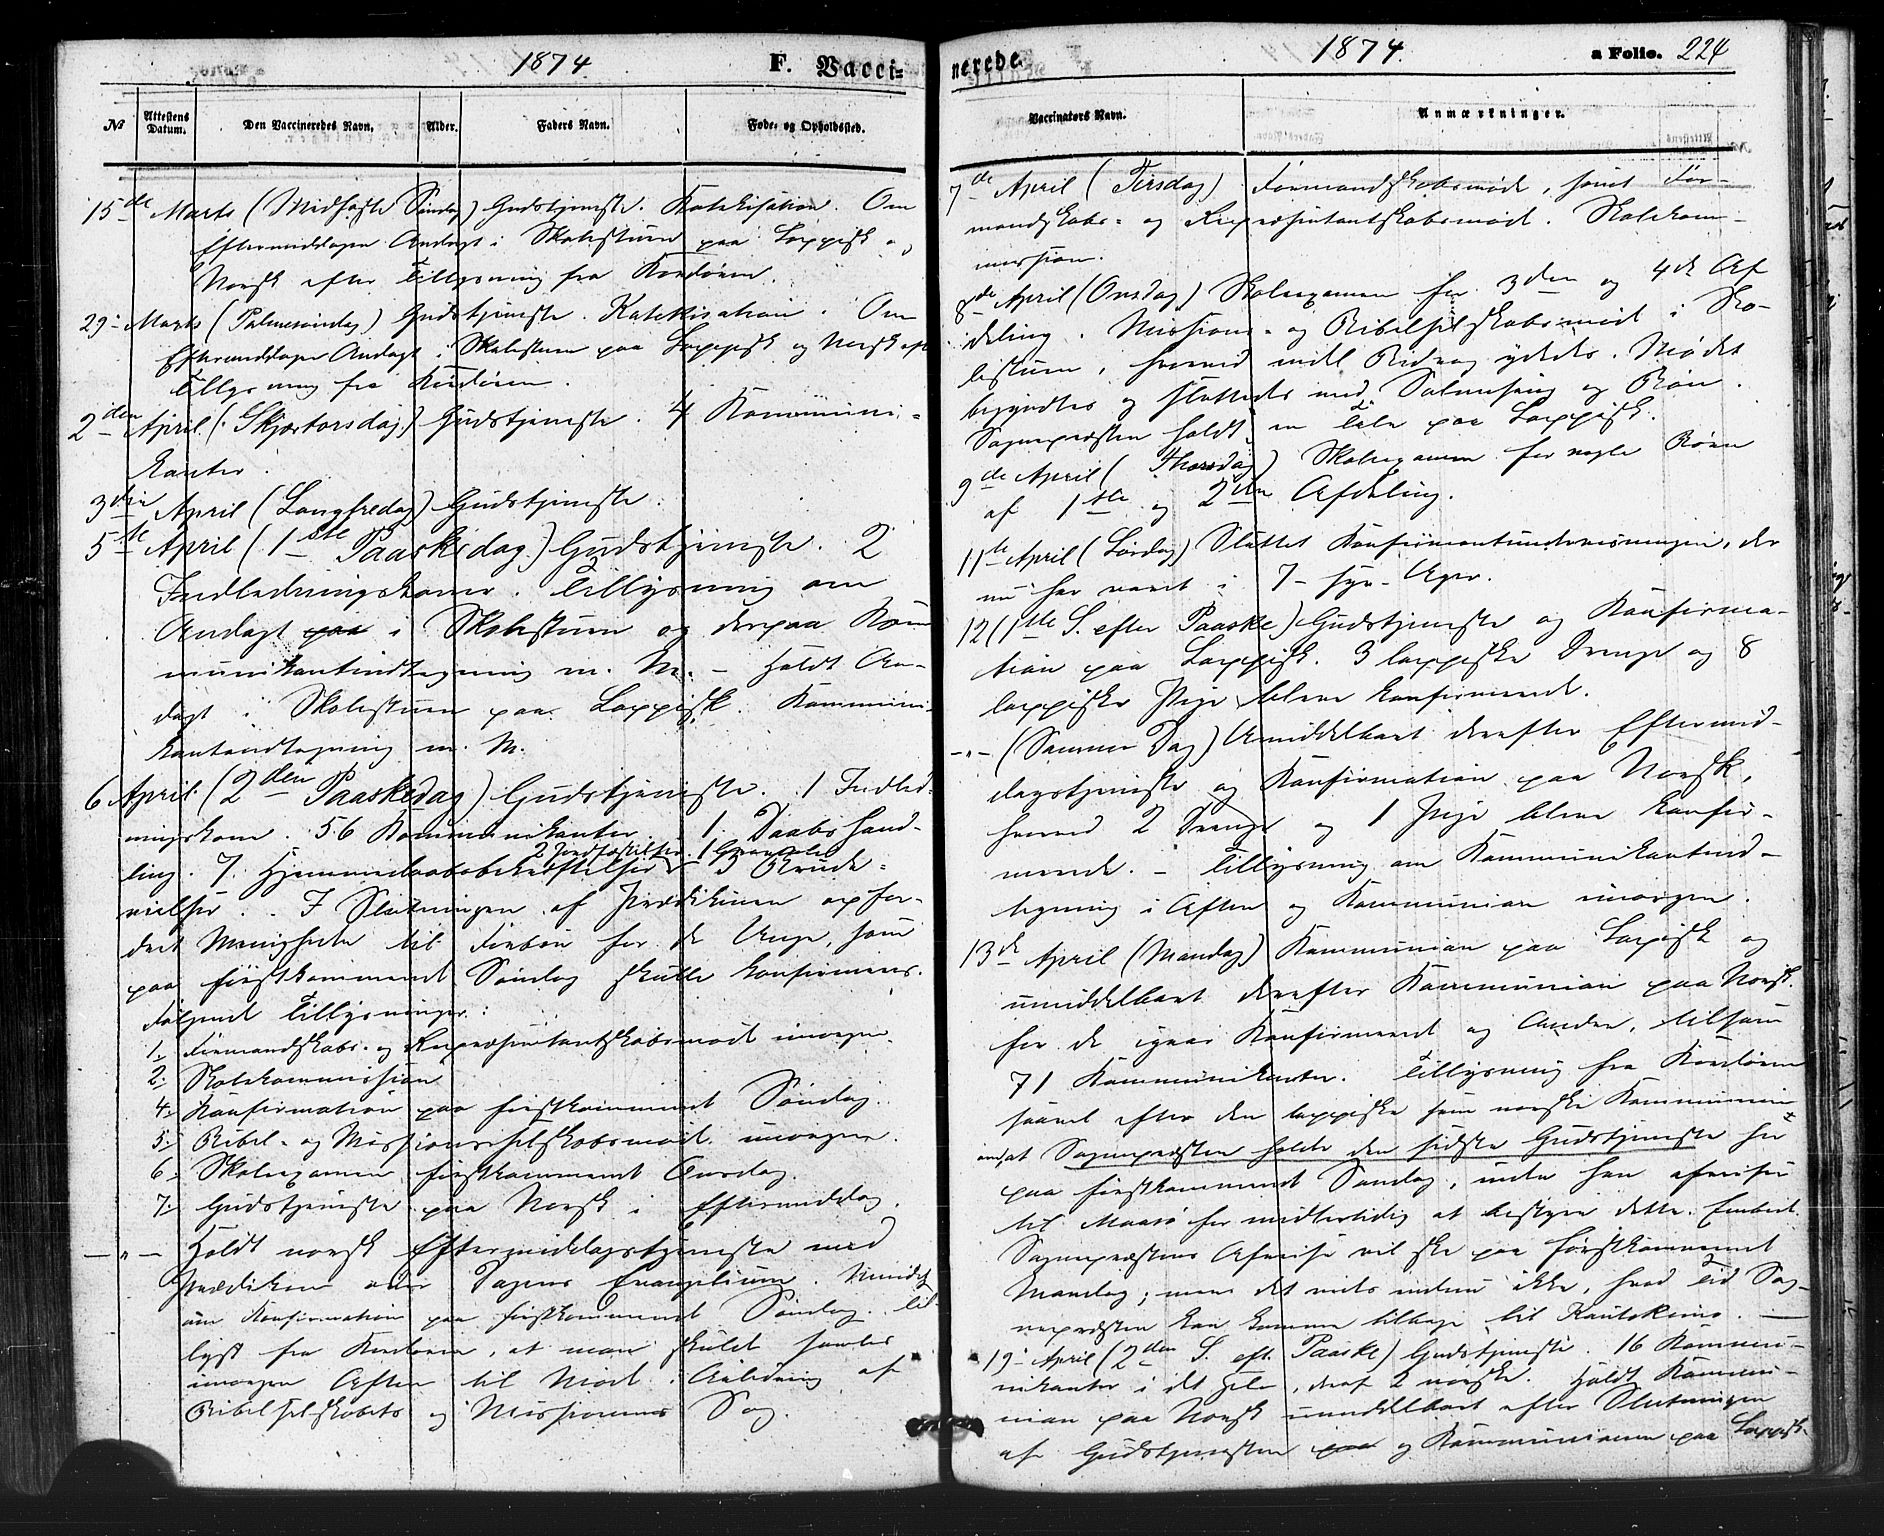 1874
F. Vacci-
№ Attestens Datum. Den Vaccineredes Navn. Alder. Faders Navn. Føde- og Opholdssted.
15de Marts (Midfaste Søndag) Gudstjeneste. Katekisation. Om
Eftermiddagen Andagt i Skolestuen paa Lappisk og
Norsk efter Tillysning fra Kordøren.
29- Marts (Palmesøndag) Gudstjeneste. Katekisation. Om
Eftermiddagen Andagt i Skolestuen paa Lappisk og Norsk eft
Tillysning fra Kordøren.
2den April (Skjærtorsdag) Gudstjeneste. 4 Kommuni-
kanter.
3die April (Langfredag) Gudstjeneste.
5te April (1ste Paaskedag) Gudstjeneste. 2
Indledningskoner. Tillysning om
Andagt paa i Skolestuen og derpaa Kom
munikantindtegning m. M. – Holdt An-
dagt i Skolestuen paa Lappisk. Kommuni-
kantindtegning m. M.
6 April (2den Paaskedag) Gudstjeneste. 1 Indled-
ningskone. 56 Kommunikanter. 1 Daabshand-
2 Jordfæstelser. 1
ling. 7 Hjemmedaabsbekræftelser 3 Brude-
vielser. I Slutningen af Prædikenen opfor-
dret Menigheden til Forbøn for de Unge, som
paa førstkommende Søndag skulle konfirmeres.
Følgende Tillysninger:
1. Formandskabs- og Repræsentantskabsmøde imorgen.
2. Skolekommission
4. Konfirmation paa førstkommende Søndag.
5. Bibel- og Missionsselskabsmøde imorgen.
6. Skoleexamen førstkommende Onsdag.
7. Gudstjeneste paa Norsk i Eftermiddag.
— " — Holdt norsk Eftermiddagstjeneste med
Prædiken over Dagens Evangelium. Mindet
om Konfirmation paa førstkommende Søndag. Til-
lyst fra Kordøren, at man skulde samles
imorgen Aften til Møde i Anledning af
Bibelselskabets og Missionens Sag.
nerede
1874.
a Folio. 224
Vaccinators Navn. Anmærkninger.
7de April (Tirsdag) Formandskabsmøde, samt For-
mandskabs- og Repræsentantskabsmøde. Skolekom-
mission.
8de April (Onsdag) Skoleexamen for 3den og 4de Af
deling. Missions- og Bibelselskabsmøde i Sko-
lestuen, hvorved milde Bidrag ydedes. Mødet
begyndtes og sluttedes med Salmesang og Bøn.
Sognepræsten holdt en Tale paa Lappisk.
9de April (Thorsdag) Skoleexamen for nogle Børn
af 1ste og 2den Afdeling.
11te April (Lørdag) Sluttet Konfirmantundervisningen, der
nu har varet i 7- syv- Uger.
12 (1ste S. efter Paaske) Gudstjeneste og Konfirma-
tion paa Lappisk. 3 lappiske Drenge og 8
lappiske Piger bleve konfirmerede.
— " — (Samme Dag) Umiddelbart derefter Eftermid-
dagstjeneste og Konfirmation paa Norsk,
hvorved 2 Drenge og 1 Pige bleve konfir-
merede. – Tillysning om Kommunikantind-
tegning i Aften og Kommunion imorgen.
13de April (Mandag) Kommunion paa Lappisk og
umiddelbart derefter Kommunion paa Norsk
for de igaar Konfirmerede og Andre, tilsam
71 Kommunikanter. Tillysning fra Kordøren
saavel efter den lappiske som norske Kommunion
om, at Sognepræsten holder den sidste Gudstjeneste her
paa førstkommende Søndag, inden han afreiser
til Maasø for midlertidig at bestyre dette Embed.
Sognepræstens Afreise vil ske paa førstkommende
Mandag; men det vides endnu ikke, hvad Tid Sog-
nepræsten kan komme tilbage til Kautokeino. —
19- April (2den S. eft. Paaske) Gudstjeneste. 16 Kommu-
nikanter i det Hele, deraf 2 norske. Holdt Kommu-
nion paa Norsk umiddelbart efter Slutningen
af Gudstjenesten paa og Kommunionen paa Lappisk.